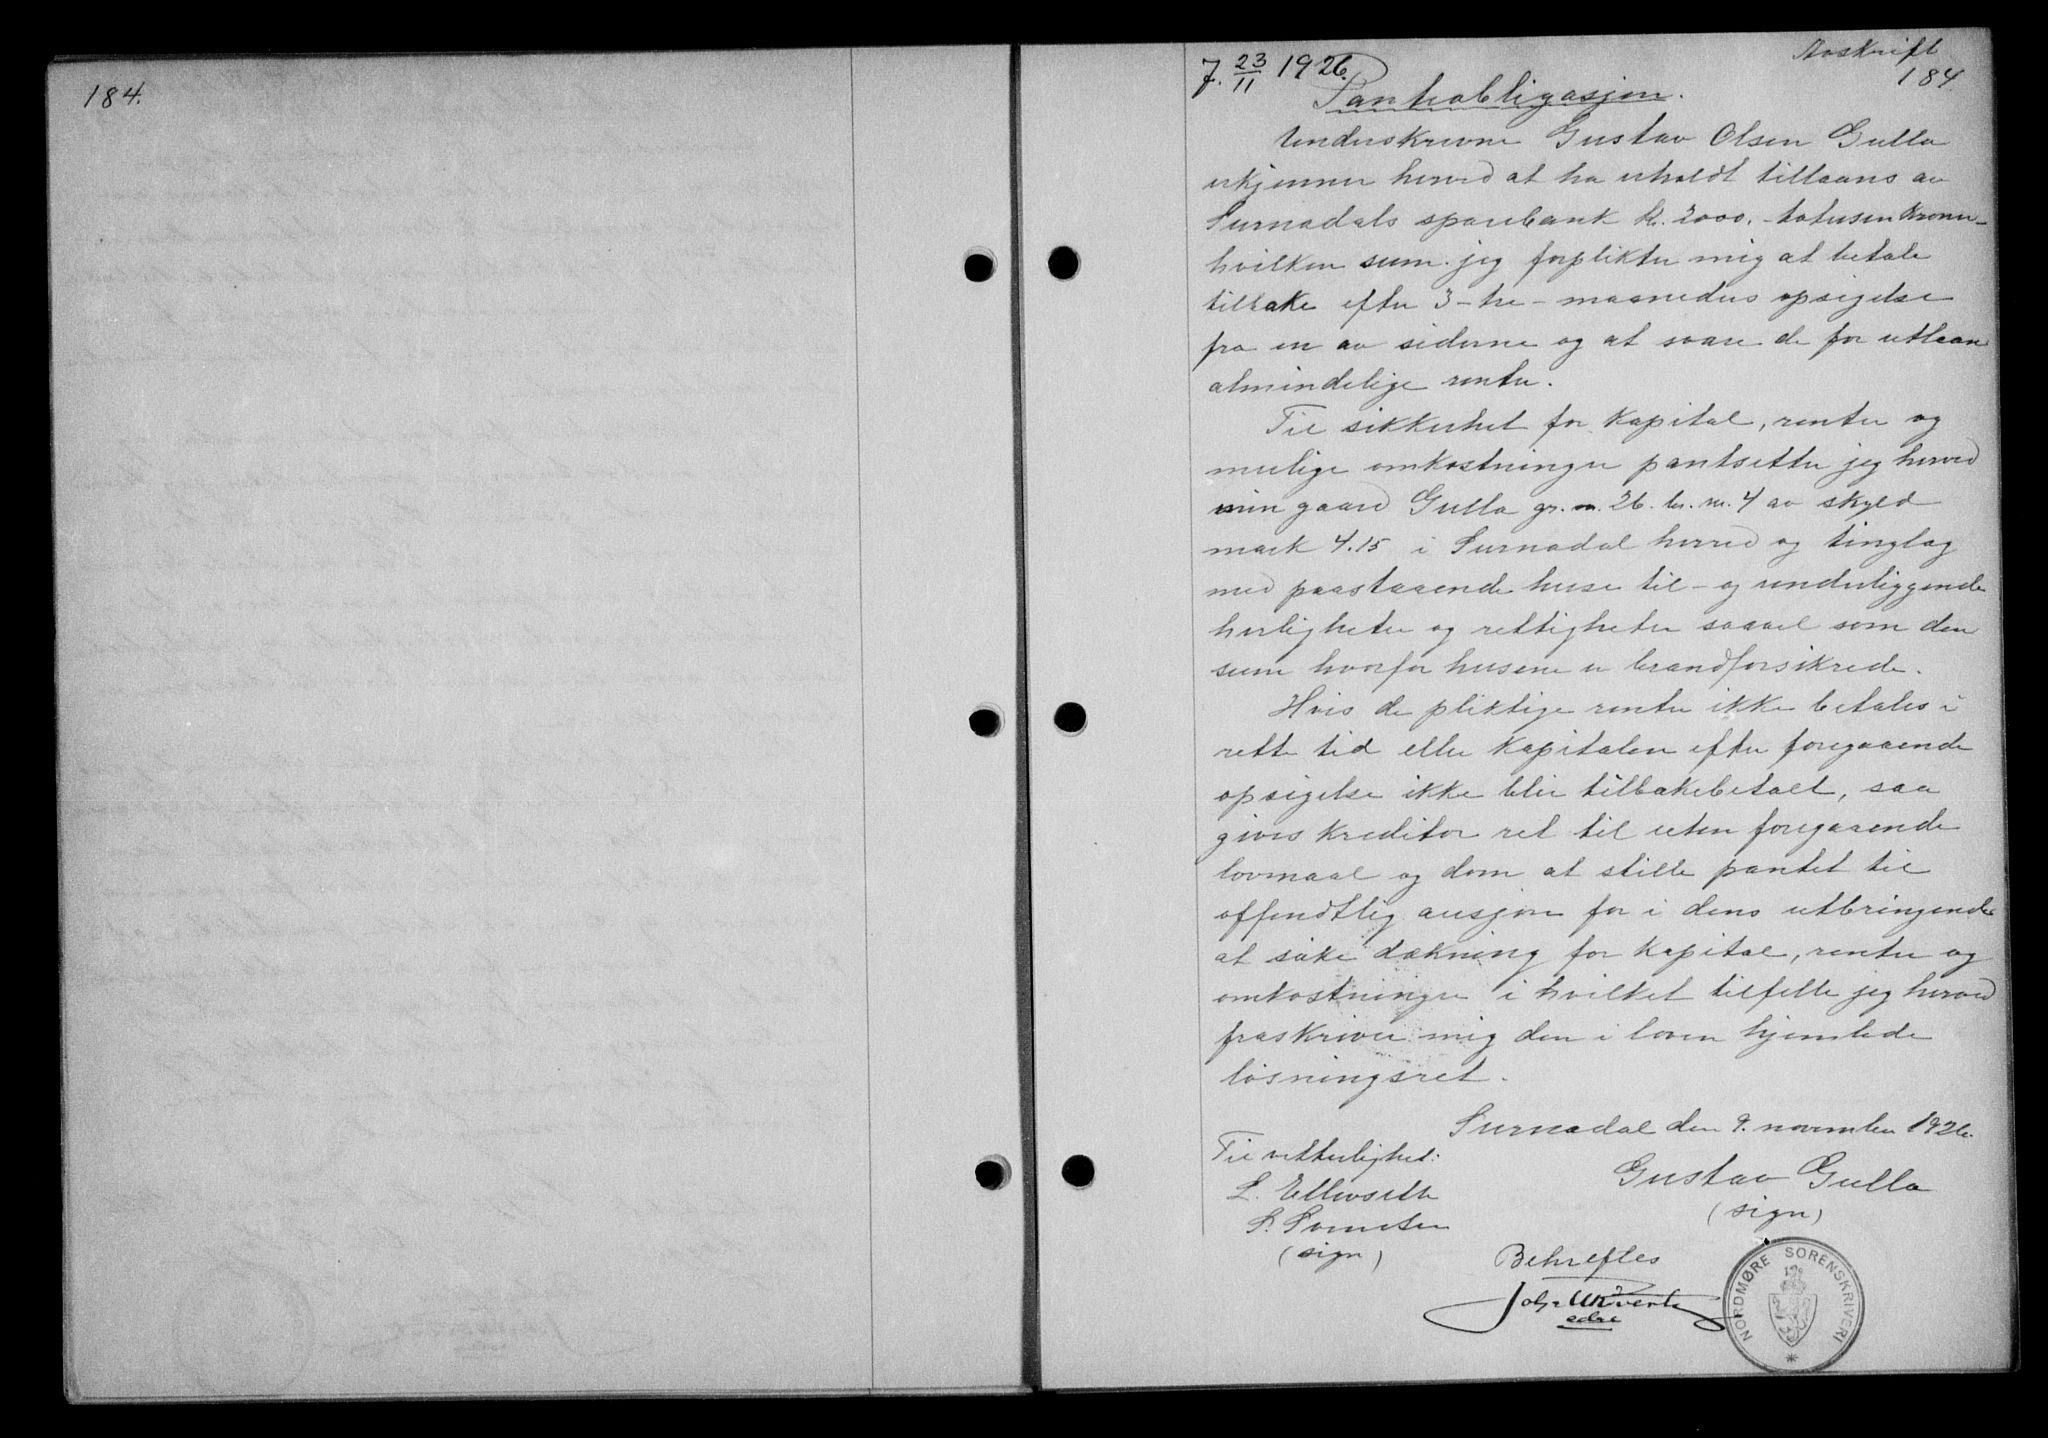 184.
Avskrift
7. 23/11 1926.
184
Pantobligasjon.
Underskrevne Gustav Olsen Gulla
erkjenner herved at ha erholdt tillaans av
Surnadals sparebank kr. 2000. - totusen kroner -
hvilken sum jeg forplikter mig at betale
tilbake efter 3 - tre - maaneders opsigelse
fra en av siderne og at svare de for utlaan
almindelige renter.
Til sikkerhet for kapital, renter og
mulige omkostninger pantsetter jeg herved
min gaard Gulla gr. n. 26. br. nr. 4 av skyld
mark 4.15 i Surnadal herred og tinglag
med paastaaende huse til - og underliggende
herligheter og rettigheter saavel som den
sum hvorfor husene er brandforsikrede.
Hvis de pliktige renter ikke betales i
rette tid eller kapitalen efter foregaaende
opsigelse ikke blir tilbakebetalt, saa
gives kreditor ret til uten foregaaende
lovmaal og dom at stille pantet til
offendtlig ausjon for i dens utbringende
at søke dækning for kapital, renter og
omkostninger i hvilket tilfelle jeg herved
fraskriver mig den i loven hjemlede
løsningsret.
Surnadal den 9. november 1926.
Til vitterlighet:
Gustav Gulla
L. Ellevseth
(sign)
(sign)
Bekreftes
NORDMØRE SORENSKRIVERI